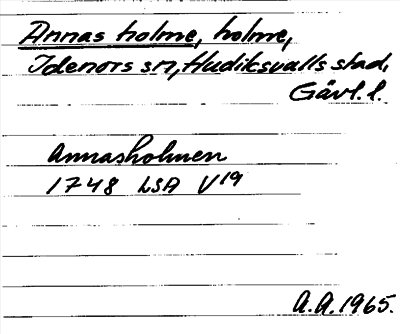 Annas holme, holme,
Idenors sn, Hudiksvalls stad,
Gävl. l.
Annasholmen
1748 LSA V19
A.A. 1965.